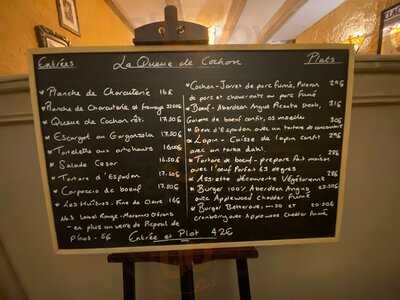 Entrées
La Queue de Cochon
Plats
* Planche de Charcuterie 16€
* Planche de Charcuterie et fromage 22.00€
* Queue de Cochon rôti. 17.50€
* Escargot au Gorgonzola 17.50€
* Tartelette aux artichauts 16.00€
* Salade Cesar 16.50€
* Tartare d'Espadon 17.50€
* Carpaccio de boeuf 17.50€
* Les Huîtres - Fine de Claire 16€
No.3 Label Rouge - Marennes Oléron
- en plus un verre de Picpoul de
Pinet - 6€
* Cochon - Jarret de porc fumé,
de porc et choucroute au porc fumé
* Boeuf - Aberdeen Angus Picanha Steak, 31€
Galume de boeuf confit, os moelle
d'Espadon avec un tartare de concombre
* Lapin - Cuisse de lapin confit 29€
avec un tarka dahl.
* Tartare de boeuf - préparé fait maison
avec l'oeuf Parfait 63 degrés 28€
* Assiette découverte Végétarienne 28€
* Burger 100% Aberdeen Angus
avec Applewood Cheddar Fumé
* Burger Betterave, miso et 20.50€
cranberry avec Applewood Cheddar Fumé
Entrée et Plat 42€